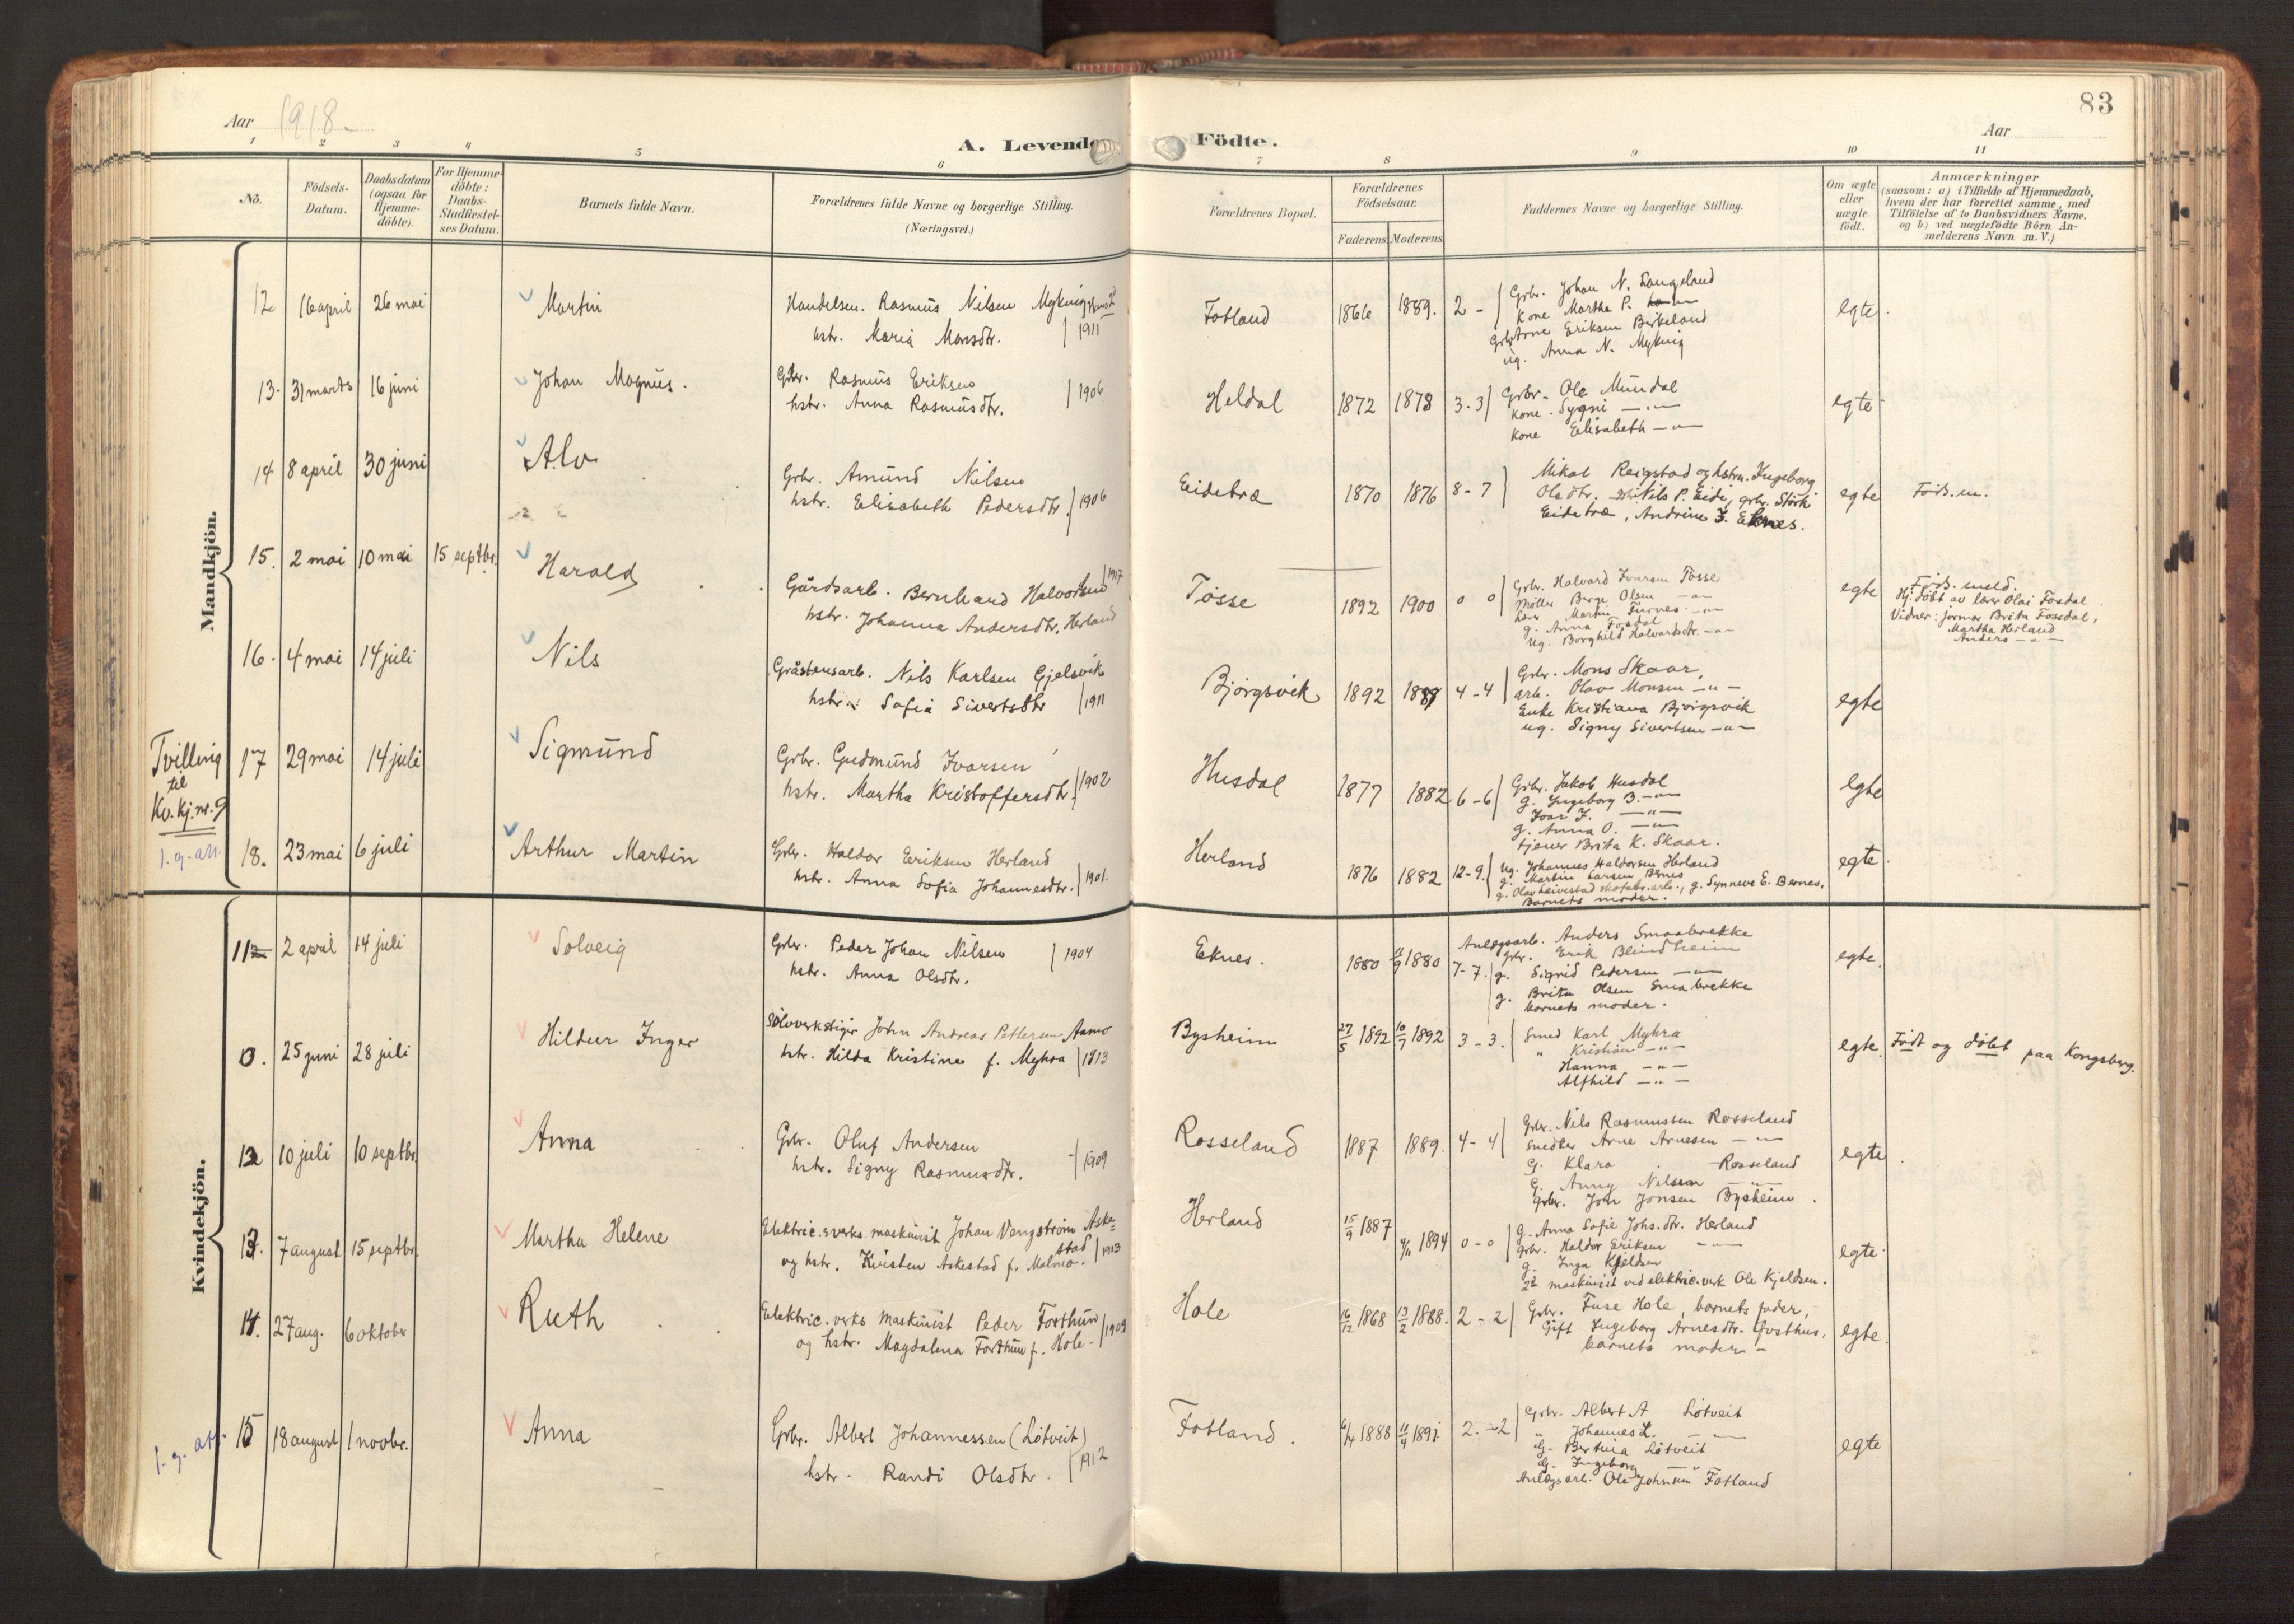 83
Aar 1918.
Aar
A. Levende Födte.
1 2 3 4 5 6 7 8 9 10 11
No.
Födsels-Datum.
Daabsdatum (ogsaa for Hjemme-döbte).
For Hjemme-döbte: Daabs-Stadfæstel-ses Datum.
Barnets fulde Navn.
Forældrenes fulde Navne og borgerlige Stilling.
(Næringsvei.)
Forældrenes Bopæl.
Forældrenes Födselsaar.
Faderens Moderens
Faddernes Navne og borgerlige Stilling.
Om ægte eller uægte födt.
Anmærkninger
(saasom: a) i Tilfælde af Hjemmedaab, hvem der har forrettet samme, med Tilföielse af to Daabsvidners Navne. og b) ved uægtefödte Börn An-melderens Navn m. V.)
Mandkjön.
12 16 april 26 mai Martin
Handelsm. Rasmus Nilsen Myking
hstr. Maria Monsdtr. 1911
Fotland 1866 1889. 2 -
Grbr. Johan N. Langeland
Kone Martha P.
Grbr. Arne Eriksen Birkeland
ug. Anna N. Myking
egte
13. 31 marts 16 juni Johan Magnus.
Grbr. Rasmus Eriksen
hstr. Anna Rasmusdtr. 1906
Heldal 1872 1878 3-3
Grbr. Ole Mundal
Kone Sygni -"-
Kone Elisabeth -"-
egte
14 8 april 30 juni Alv
Grbr. Amund Nilsen
hstr. Elisabeth Pedersdtr. 1906
Eidetræ 1870 1876 8-7
Mikal Reigstad og hstru. Ingeborg
Olsdtr. Nils P. Eide, grbr. Störk
Eidetræ, Andrine J. Eknes.
egte Föds.m.
15. 2 mai 10 mai 15 septbr. Harald
Gårdsarb. Bernhard Halvorsen 1917
hstr. Johanna Andersdtr. Herland
Tösse 1892 1900 0 0
Grbr. Halvard Ivarsen Tösse
Möller Berge Olsen -"-
Martin Furnes -"-
g. Anna Fosdal
Ug. Borghild Halvardsdtr. -"-
egte
Föds.meld.
Hj. döbt av lærer Olai Fosdal
Vidner: jormor Brita Fossdal,
Martha Herland
Anders -"-
16. 4 mai 14 juli Nils
Gråstensarb. Nils Karlsen Gjelsvik
hstr. Sofia Sivertsdtr 1911
Bjørgsvik 1892 1889 4-4
Grbr. Mons Skaar,
arb. Olav Monsen -"-
Enke Kristiana Bjørgsvik
ug. Signy Sivertsen -"-
egte
Tvilling til Kv.kj.nr.9
17 29 mai 14 juli Sigmund
Grbr. Gudmund Ivarsen
hstr. Martha Kristoffersdtr. 1902
Husdal 1877 1882 6-6
Grbr. Jakob Husdal
g. Ingeborg B. -"-
Ivar J. -"-
g. Anna O. -"-
tjener Brita K. Skaar.
egte
l.g.att.
18. 23 mai 6 juli Arthur Martin
Grbr. Haldor Eriksen Herland
hstr. Anna Sofia Johannesdtr. 1901.
Herland 1876 1882 12-9.
Ug. Johannes Haldorsen Herland
g. Martin Larsen Bernes
g. Olav Leivestad skofabr.arb., g. Synneve E. Bernes.
Barnets moder.
egte
Kvindekjön.
11 2 april 14 juli Solveig
Grbr. Peder Johan Nilsen
hstr. Anna Olsdtr. 1904
Eknes. 1880 11/9 1880 7-7.
Anlægsarb. Anders Smaabrekke
grbr. Erik Blindheim
g. Sigrid Pedersen -"-
g. Brita Olsen Smabrekke
barnets moder.
egte.
25 juni 28 juli Hildur Inger
Sölvverkstiger John Andreas Pettersen Aamo
hstr. Hilda Kristine f. Myhra 1913
Bysheim 27/5 1892 10/7 1892 3-3.
Smed Karl Myhra
" Kristian -"-
Hanna -"-
Alfhild -"-
egte. Födt og döbt paa Kongsberg.
12 10 juli 10 septbr. Anna
Grbr. Oluf Andersen
hstr. Signy Rasmusdtr. 1909
Rosseland 1887 1889. 4-4
Grbr. Nils Rasmussen Rosseland
Snedker Arne Arnesen -"-
G. Klara Rosseland
G. Anny Nilsen -"-
Grbr. Jon Jonsen Bysheim.
egte
13. 7 august 15 septbr. Martha Helene
Elektric.sverks. maskinist Johan Vangström Aske-
stad
og hstr. Kristen Askestad f. Malmo. 1913
Herland 15/9 1887 1894 0-0
G. Anna Sofie Johs.dtr. Herland
grbr. Haldor Eriksen -"-
g. Inga Kjeldsen
2den maskinist ved elektric.verk Ole Kjeldsen.
egte
14. 27 aug. 6 oktober Ruth
Elektric. verks maskinist Peder Forthun
og hstr. Magdalena Forthun f. Hole. 1909
Hole 16/12 1868 13/2 1888. 2-2
Grbr. Fuse Hole, barnets fader,
Gift Ingeborg Arnesdtr. Josthus,
barnets moder -
egte.
l.g. att.
15 18 august 1 novbr. Anna
Grbr. Albert Johannessen (Lötveit)
hstr. Randi Olsdtr. 1912
Fotland. 1888 11/4 1891. 2.-2
Grbr. Albert A Lötveit
" Johannes L. -"-
G. Bertina Lötveit
G. Ingeborg -"-
Anlægsarb. Ole Johnsen Fotland
egte